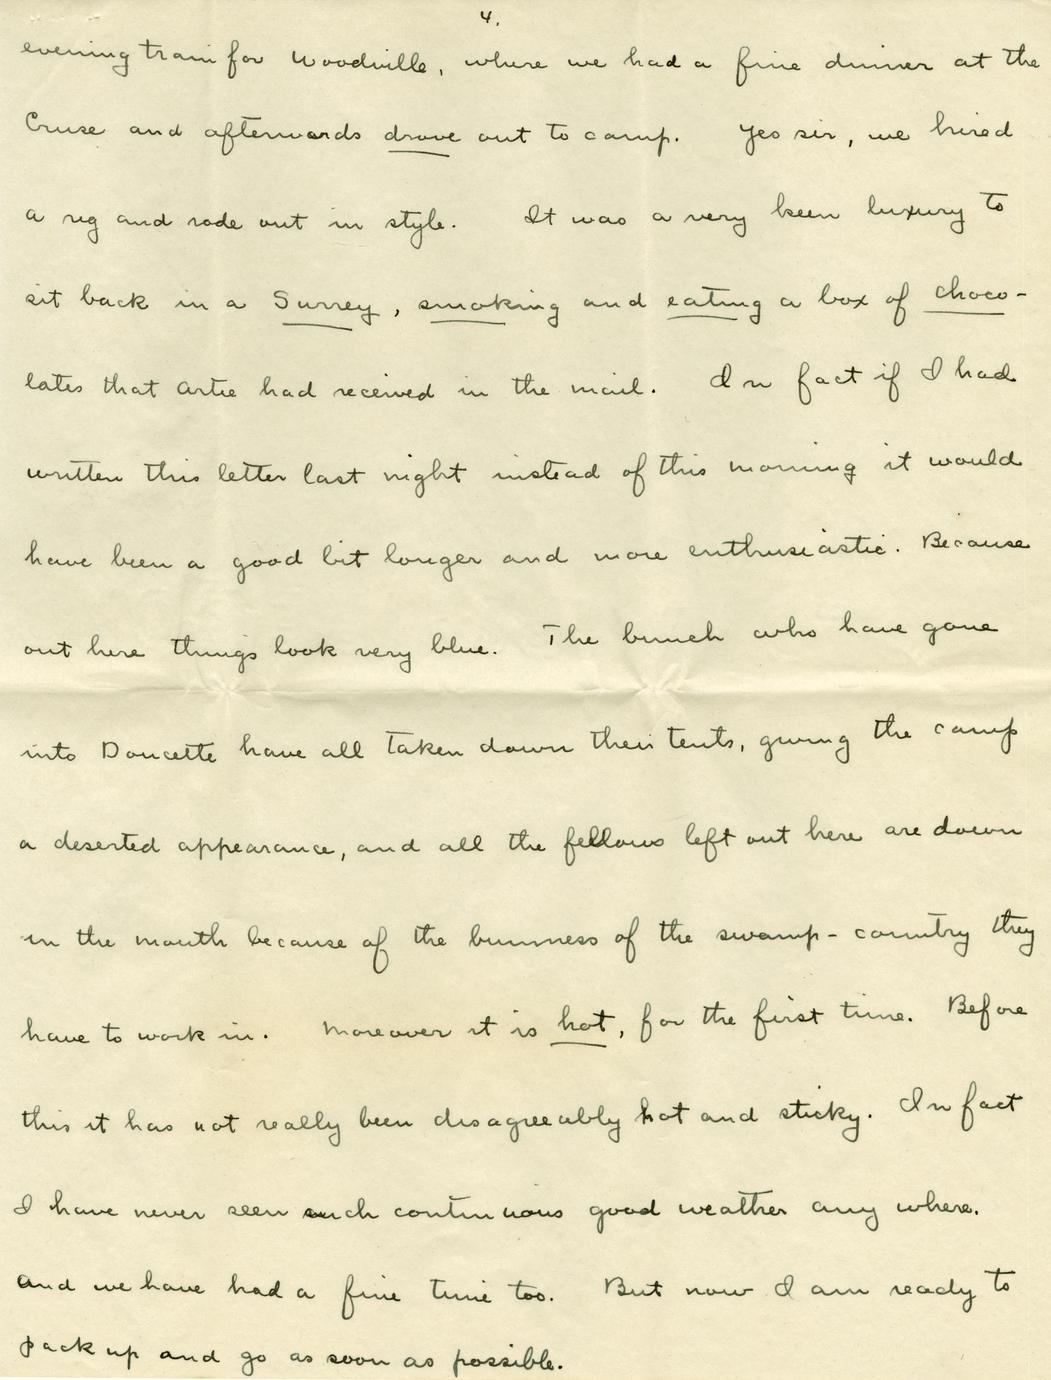 4.
evening train for Woodville, where we had a fine dinner at the
Cruse and afterwards drove out to camp. Yes sir, we hired
a rig and rode out in style. It was a very keen luxury to
sit back in a Surrey, smoking and eating a box of choco-
lates that Artie had received in the mail. In fact if I had
written this letter last night instead of this morning it would
have been a good bit longer and more enthusiastic. Because
out here things look very blue. The bunch who have gone
into Doucette have all taken down their tents, giving the camp
a deserted appearance, and all the fellows left out here are down
in the mouth because of the bumness of the swamp-country they
have to work in. Moreover it is hot, for the first time. Before
this it has not really been disagreeably hot and sticky. In fact
I have never seen such continuous good weather any where.
and we have had a fine time too. But now I am ready to
pack up and go as soon as possible.